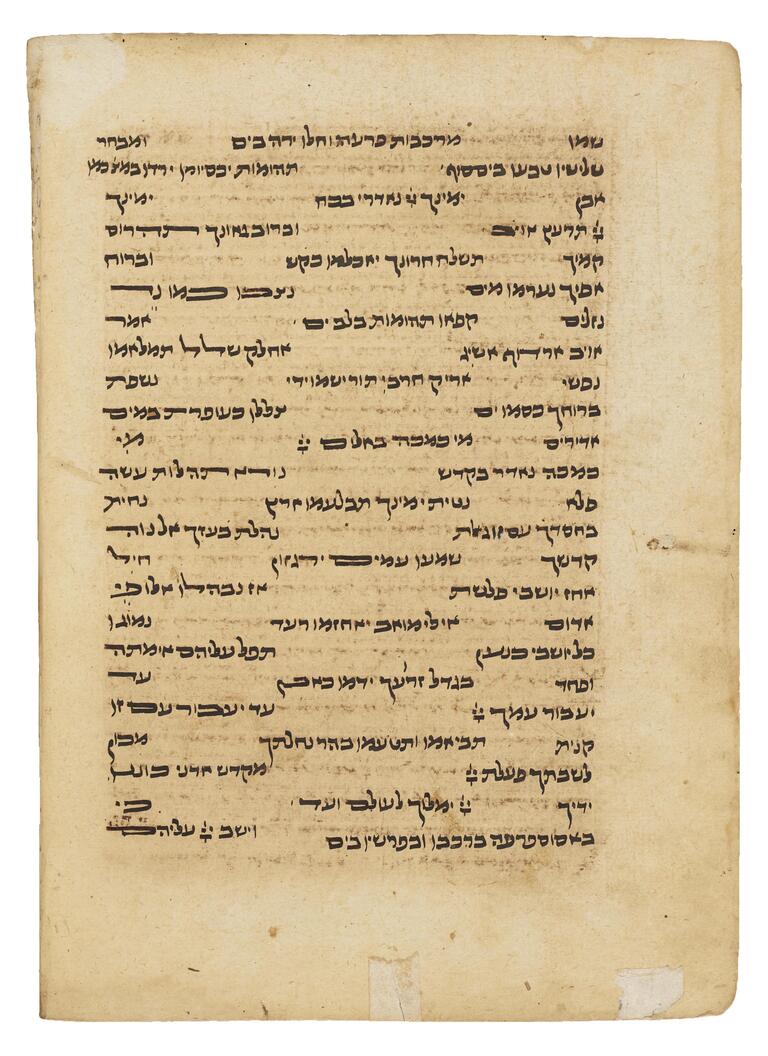 שמו מרכבות פרעה וחלו ירה בים ומבחר
שלישיו טבעו בים סוף תהומות יכסיומו ירדו
אבן ימינך יי נאדרי בכח ימינך
יי תרעץ אויב וברוב גאונך תהרוס
קמיך תשלח חרונך יאכלמו כקש וברוח
אפיך נערמו מים נצבו כמו נד
נזלים קפאו תהומות בלב ים אמר
אויב ארדוף אשיג אחלק שלל תמלאמו
נפשי אריק חרבי תורישמו ידי נשפת
ברוחך כסמו ים צללו כעופרת במים
אדירים מי כמכה באלים יי מי
כמכה נאדר בקדש נורא תהלות עשה
פלא נטית ימינך תבלעמו ארץ נחית
בחסדך עם זו גאלת נהלת בעזך אל נוה
קדשך שמעו עמים ירגזון חיל
אחז יושבי פלשת אז נבהלו אלופי
אדום אילי מואב יאחזמו רעד נמוגו
כל יושבי כנען תפל עליהם אימתה
ופחד בגדל זרעך ידמו כאבן עד
יעבור עמך יי עד יעבור עם זו
קנית תביאמו ותטעמו בהר נחלתך מכון
לשבתך פעלת יי מקדש אדני כוננו
ידיך יי ימלך לעולם ועד כי
בא סוס פרעה ברכבו ובפרשיו בים וישב יי עליהם